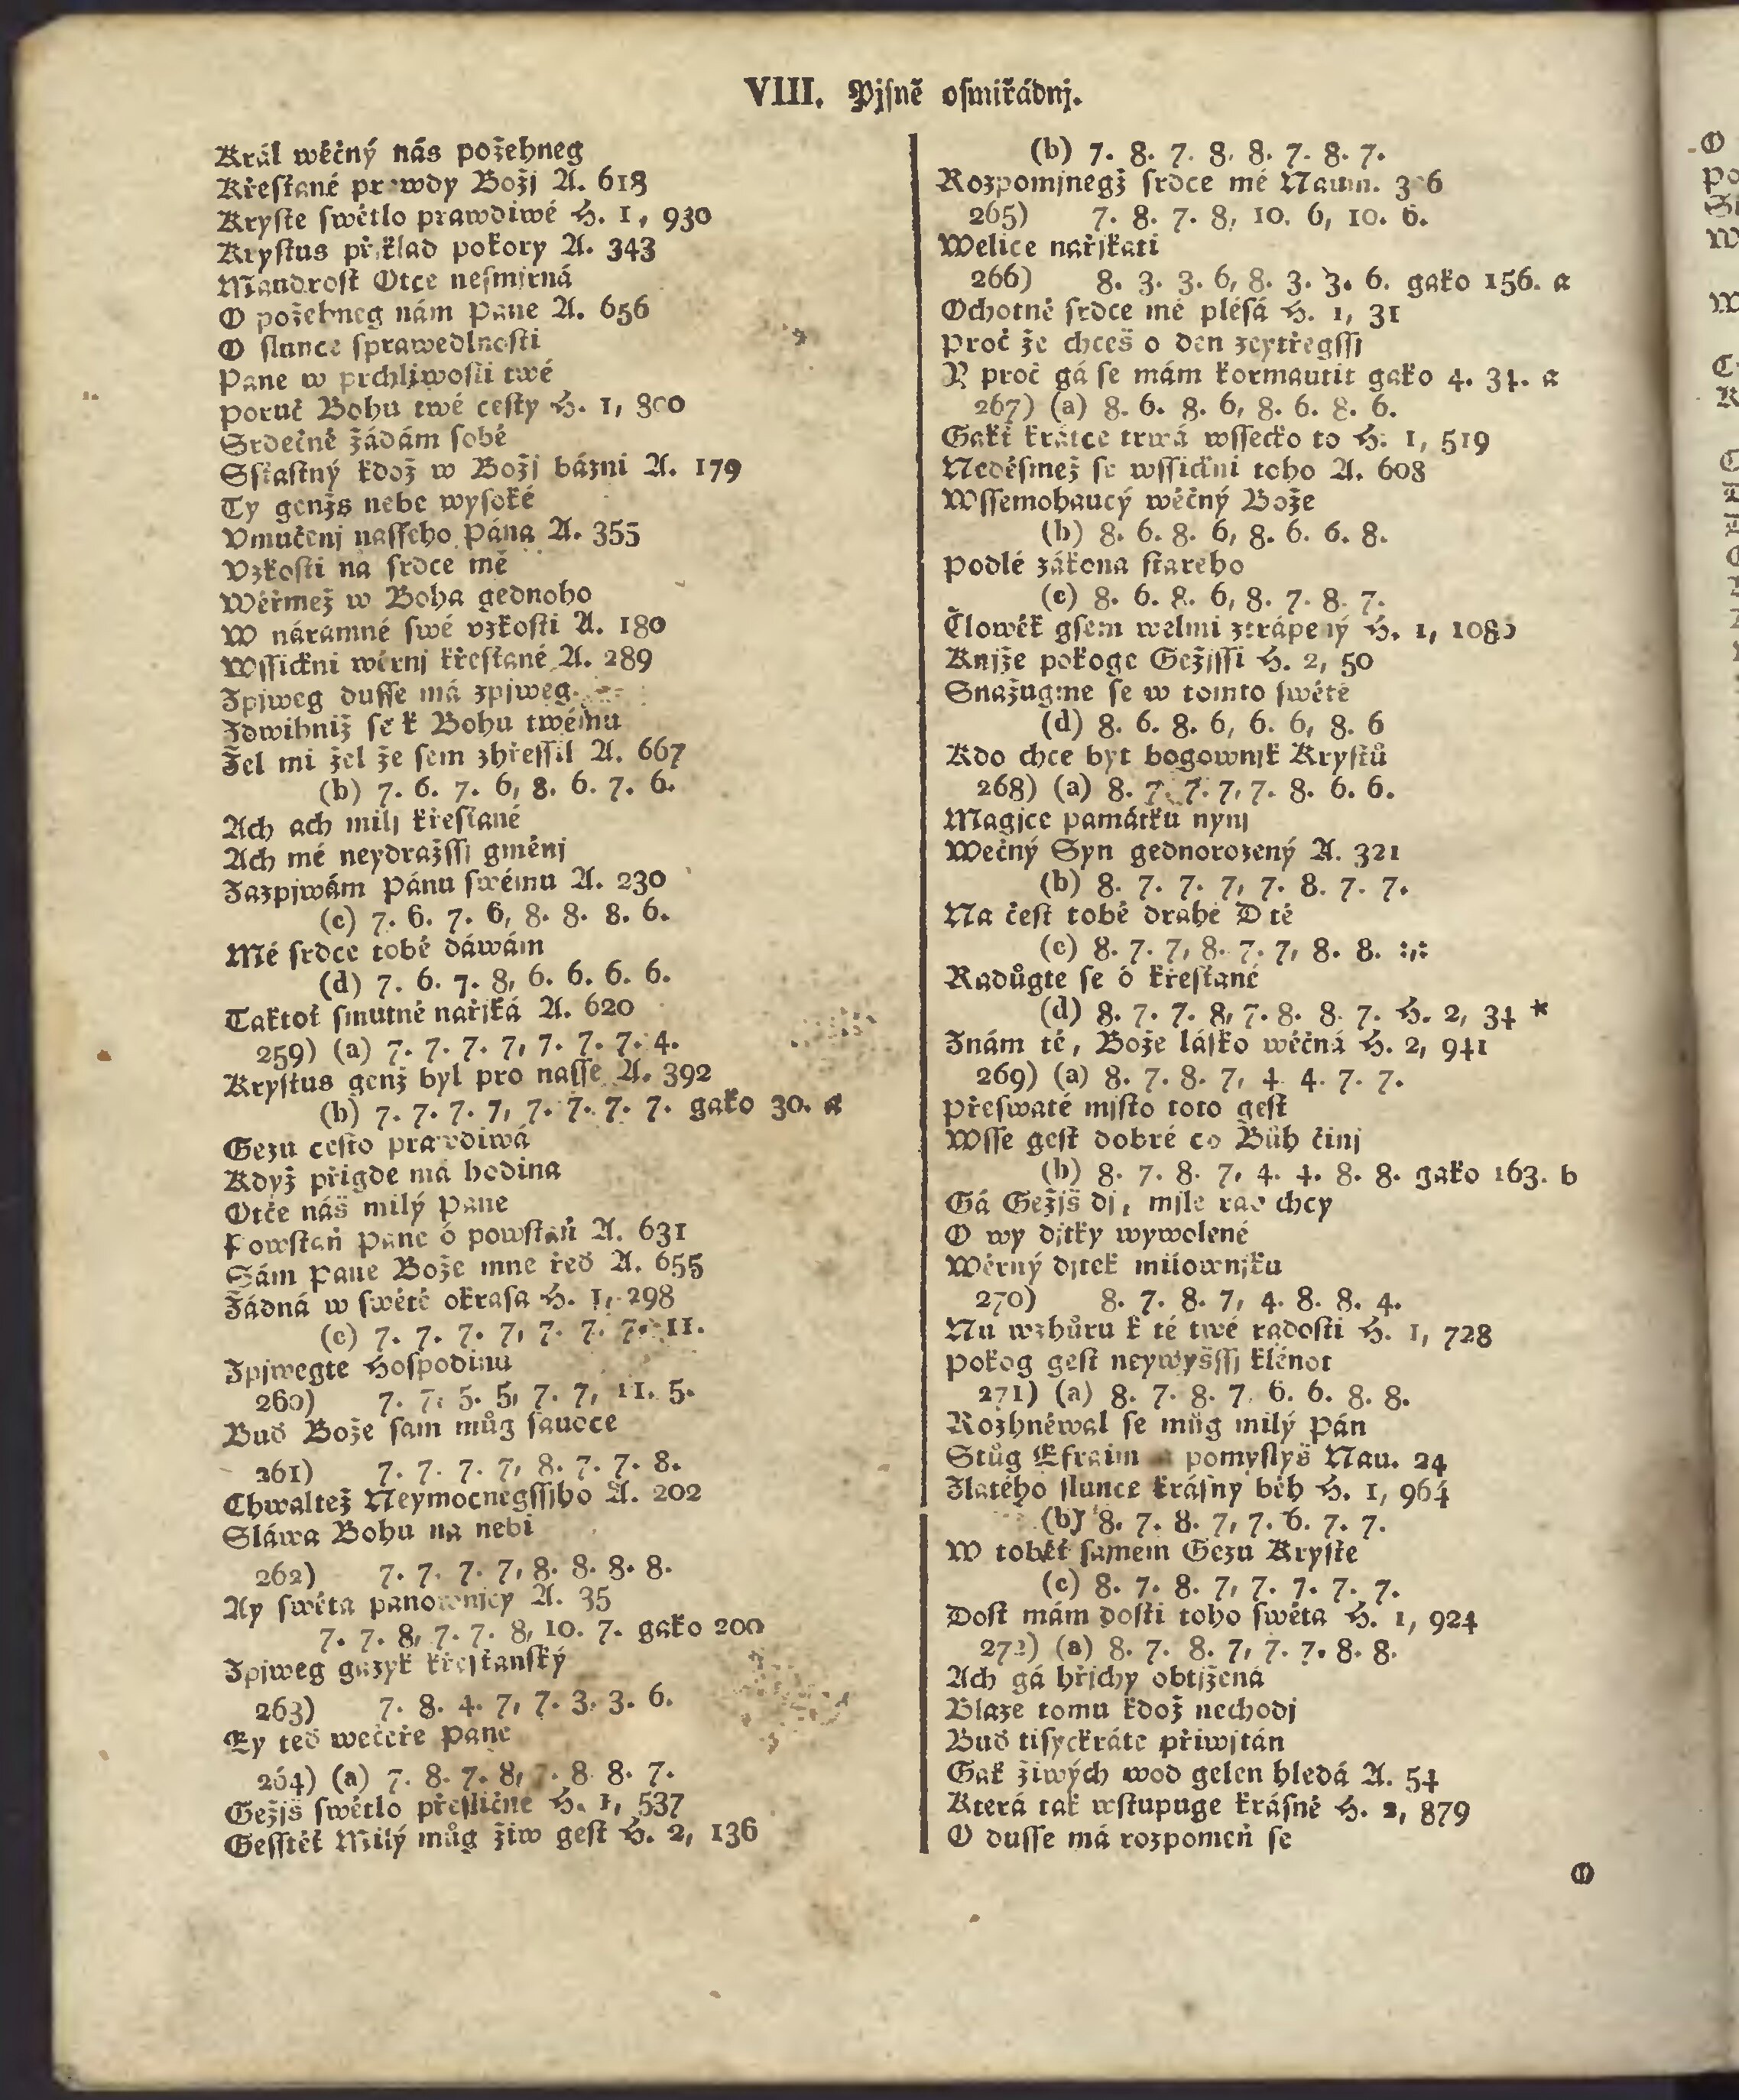 VIII. Pjsně osmiřádnj.
Král wěčný nás požehneg
Křesťané prawdy Božj A. 618
Kryste swětlo prawdiwé H. 1, 930
Krystus přjklad pokory A. 343
Maudrost Otce nesmjrná
O požehneg nám Pane A. 656
O slunce sprawedlnosti
Pane w prchljwosti twé
Poruč Bohu twé cesty H. 1, 800
Srdečně žádám sobě
Sstastný kdož w Božj bázni A. 179
Ty genžs nebe wysoké
Vmučenj nasseho Pána A. 355
Vzkosti na srdce mé
Wěřmež w Boha gednoho
W náramné swé vzkosti A. 180
Wssickni wěrnj křesťané A. 289
Zpjweg dusse má zpjweg
Zdwihniž se k Bohu twému
Žel mi žel že sem zhřessil A. 667
(b) 7. 6. 7. 6, 8. 6. 7. 6.
Ach ach milj křesťané
Ach mé neydražssj gměnj
Zazpjwám Pánu swému A. 230
(c) 7. 6. 7. 6, 8. 8. 8. 6.
Mé srdce tobě dáwám
(d) 7. 6. 7. 8, 6. 6. 6. 6.
Taktoť smutně nařjká A. 620
259) (a) 7. 7. 7. 7, 7. 7. 7. 4.
Krystus genž byl pro nasse A. 392
(b) 7. 7. 7. 7, 7. 7. 7. 7. gako 30. a
Gezu cesto prawdiwá
Když přigde má hodina
Otče náš milý Pane
Powstaň Pane ó powstaň A. 631
Sám Pane Bože mne řeď A. 655
Žádná w swětě okrasa H. 1, 298
(c) 7. 7. 7. 7, 7. 7. 7. 11.
Zpjwegte Hospodinu
260) 7. 7. 5. 5, 7. 7, 11. 5.
Buď Bože sam můg saudce
261) 7. 7. 7. 7, 8. 7. 7. 8.
Chwaltež Neymocněgssjho A. 202
Sláwa Bohu na nebi
262) 7. 7. 7. 7, 8. 8. 8. 8.
Ay swěta panownjcy A. 35
7. 7. 8, 7. 7. 8, 10. 7. gako 200
Zpjweg gazyk křesťanský
263) 7. 8. 4. 7, 7. 3. 3. 6.
Ey teď wečeře Pane
264) (a) 7. 8. 7. 8, 7. 8. 8. 7.
Gežjš swětlo přesličné H. 1, 537
Gesstěť Milý můg žiw gest H. 2, 136
(b) 7. 8. 7. 8, 8. 7. 8. 7.
Rozpomjnegž srdce mé Naum. 306
265) 7. 8. 7. 8, 10. 6, 10. 6.
Welice nařjkati
266) 8. 3. 3. 6, 8. 3. 3. 6. gako 156. a
Ochotně srdce mé plésá H. 1, 31
Proč že chceš o den zeytřegssj
Y proč gá se mám kormautit gako 4. 34. a
267) (a) 8. 6. 8. 6, 8. 6. 8. 6.
Gakť krátce trwá wssecko to H. 1, 519
Neděsmež se wssickni toho A. 608
Wssemohaucý wěčný Bože
(b) 8. 6. 8. 6, 8. 6. 6. 8.
Podlé zákona starého
(c) 8. 6. 8. 6, 8. 7. 8. 7.
Člowěk gsem welmi ztrápený H. 1,
Knjže pokoge Gežjssi H. 2, 50
Snažugme se w tomto swětě
(d) 8. 6. 8. 6, 6. 6, 8. 6
Kdo chce byt bogownjk Krystů
268) (a) 8. 7. 7. 7, 7. 8. 6. 6.
Magjce památku nynj
Wečný Syn gednorozený A. 321
(b) 8. 7. 7. 7, 7. 8. 7. 7.
Na čest tobě drahé Djtě
(c) 8. 7. 7, 8. 7. 7, 8. 8. :,:
Radůgte se ó křesťané
(d) 8. 7. 7. 8, 7. 8. 8. 7. H. 2, 34 *
Znám tě, Bože lásko wěčná H. 2, 941
269) (a) 8. 7. 8. 7, 4. 4. 7. 7.
Přeswaté mjsto toto gest
Wsse gest dobré co Bůh činj
(b) 8. 7. 8. 7, 4. 4. 8. 8. gako 163. b
Gá Gežjš dj, mjle rad chcy
O wy djtky wywolené
Wěrný djtek milownjku
270) 8. 7. 8. 7, 4. 8. 8. 4.
Nu wzhůru k té twé radosti H. 1, 728
Pokog gest neywyšssj klénot
271) (a) 8. 7. 8. 7, 6. 6. 8. 8.
Rozhněwal se můg milý Pán
Stůg Efraim a pomyslyš Nau. 24
Zlatého slunce krásny běh H. 1, 964
(b) 8. 7. 8. 7, 7. 6. 7. 7.
W toběť samem Gezu Kryste
(c) 8. 7. 8. 7, 7. 7. 7. 7.
Dost mám dosti toho swěta H. 1, 924
272) (a) 8. 7. 8. 7, 7. 7. 8. 8.
Ach gá hřjchy obtjžená
Blaze tomu kdož nechodj
Buď tisyckráte přiwjtán
Gak žiwých wod gelen hledá A. 54
Která tak wstupuge krásně H. 2, 879
O dusse má rozpomeň se
O